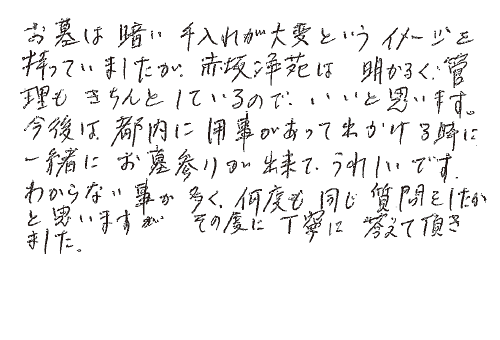 お墓は 暗い 手入れが大変というイメージを
持っていましたが、赤坂浄苑は 明かるく、管
理も きちんとしているので、いいと思います。
今後は 都内に 用事があって出かける時に
一緒に お墓参りが 出来て、うれしいです。
わからない事が 多く、何度も 同じ 質問をしたか
と思いますが その度に 丁寧に 答えて頂き
ました。